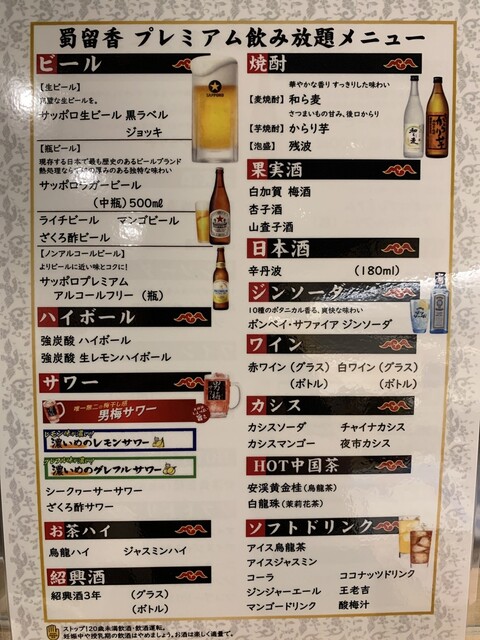 蜀留香 プレミアム飲み放題メニュー
ビール
【生ビール】
サッポロ生ビール 黒ラベル
ジョッキ
【瓶ビール】
現存する日本で最も歴史のあるビールブランド
サッポロラガービール
(中瓶) 500㎖
ライチビール マンゴビール
ざくろ酢ビール
【ノンアルコールビール】
よりビールに近い味とコクに!
サッポロプレミアム
アルコールフリー (瓶)
ハイボール
強炭酸 ハイボール
強炭酸 生レモンハイボール
サワー
男梅サワー
濃いめのレモンサワー
濃いめのグレフルサワー
シークヮーサーサワー
ざくろ酢サワー
お茶ハイ
烏龍ハイ ジャスミンハイ
紹興酒
紹興酒3年 (グラス)
(ボトル)
焼酎
華やかな香り すっきりした味わい
[麦焼酎] 和ら麦
さつまいもの甘み、後口からり
[芋焼酎] からり芋
[泡盛] 残波
果実酒
白加賀 梅酒
杏子酒
山査子酒
日本酒
辛丹波 (180ml)
ジンソーダ
10種のボタニカル香る、爽快な味わい
ボンベイ・サファイア ジンソーダ
ワイン
赤ワイン (グラス) 白ワイン (グラス)
(ボトル) (ボトル)
カシス
カシスソーダ チャイナカシス
カシスマンゴー 夜市カシス
HOT中国茶
安渓黄金桂(烏龍茶)
白龍珠(茉莉花茶)
ソフトドリンク
アイス烏龍茶
アイスジャスミン
コーラ ココナッツドリンク
ジンジャーエール 王老吉
マンゴードリンク 酸梅汁
ストップ!20歳未満飲酒・飲酒運転。
妊娠中や授乳期の飲酒はやめましょう。お酒は楽しく適量で。